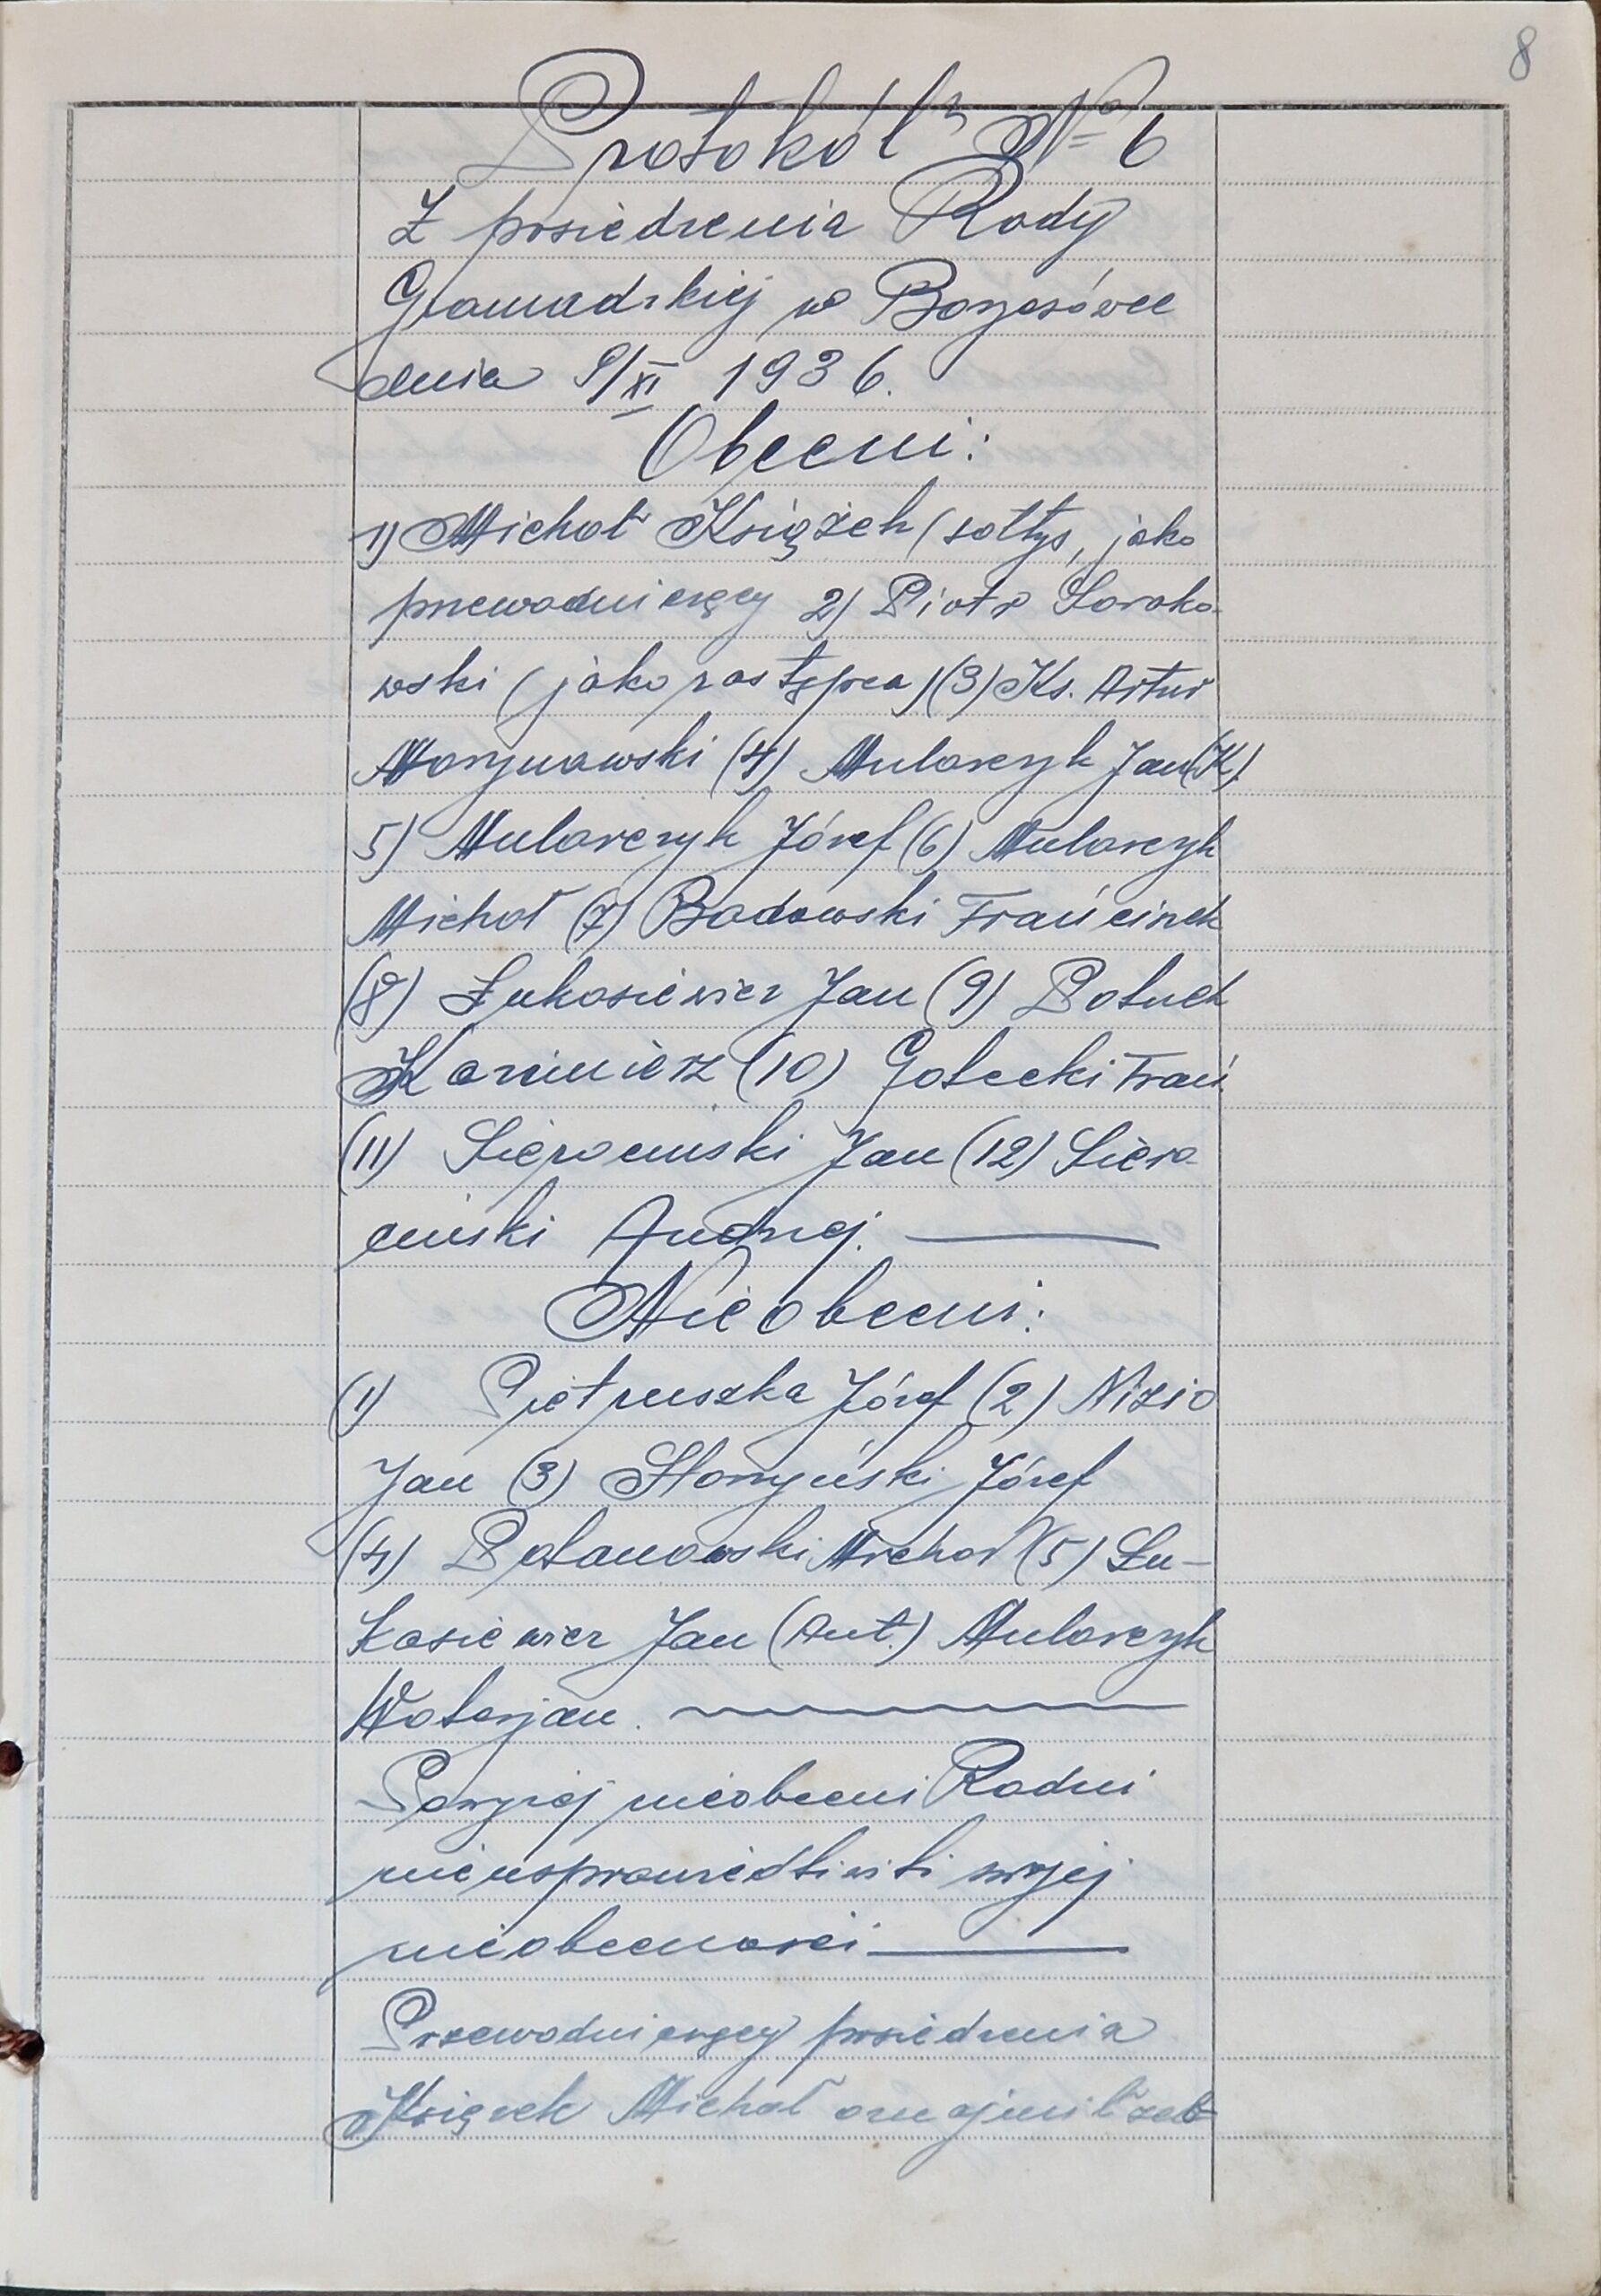 8
Protokół № 6
Z posiedzenia Rady
Gromadzkiej w
dnia 9/XI 1936.
Obecni:
1) Michał Książek (sołtys, jako
przewodniczący 2) Piotr Soroko-
wski (jako zastępca) (3) Ks. Artur
(4) Mularczyk Jan (K).
5) Mularczyk Józef (6) Mularczyk
Michał (7) Badowski Franciszek
(8) Łukasiewicz Jan (9)
Kazimierz (10) Gołecki Fran.
(11) Sierociński Jan (12) Siero-
ciński Andrzej.
Nieobecni:
(1) Pietruszka Józef (2) Nizio
Jan (3) Józef
(4) Polanowski Michał (5) Łu-
kasiewicz Jan (Ant.) Mularczyk
Walerjan.
Powyżej nieobecni Radni
nieusprawiedliwili swojej
nieobecności
Przewodniczący posiedzenia
Książek Michał oznajmił zeb-